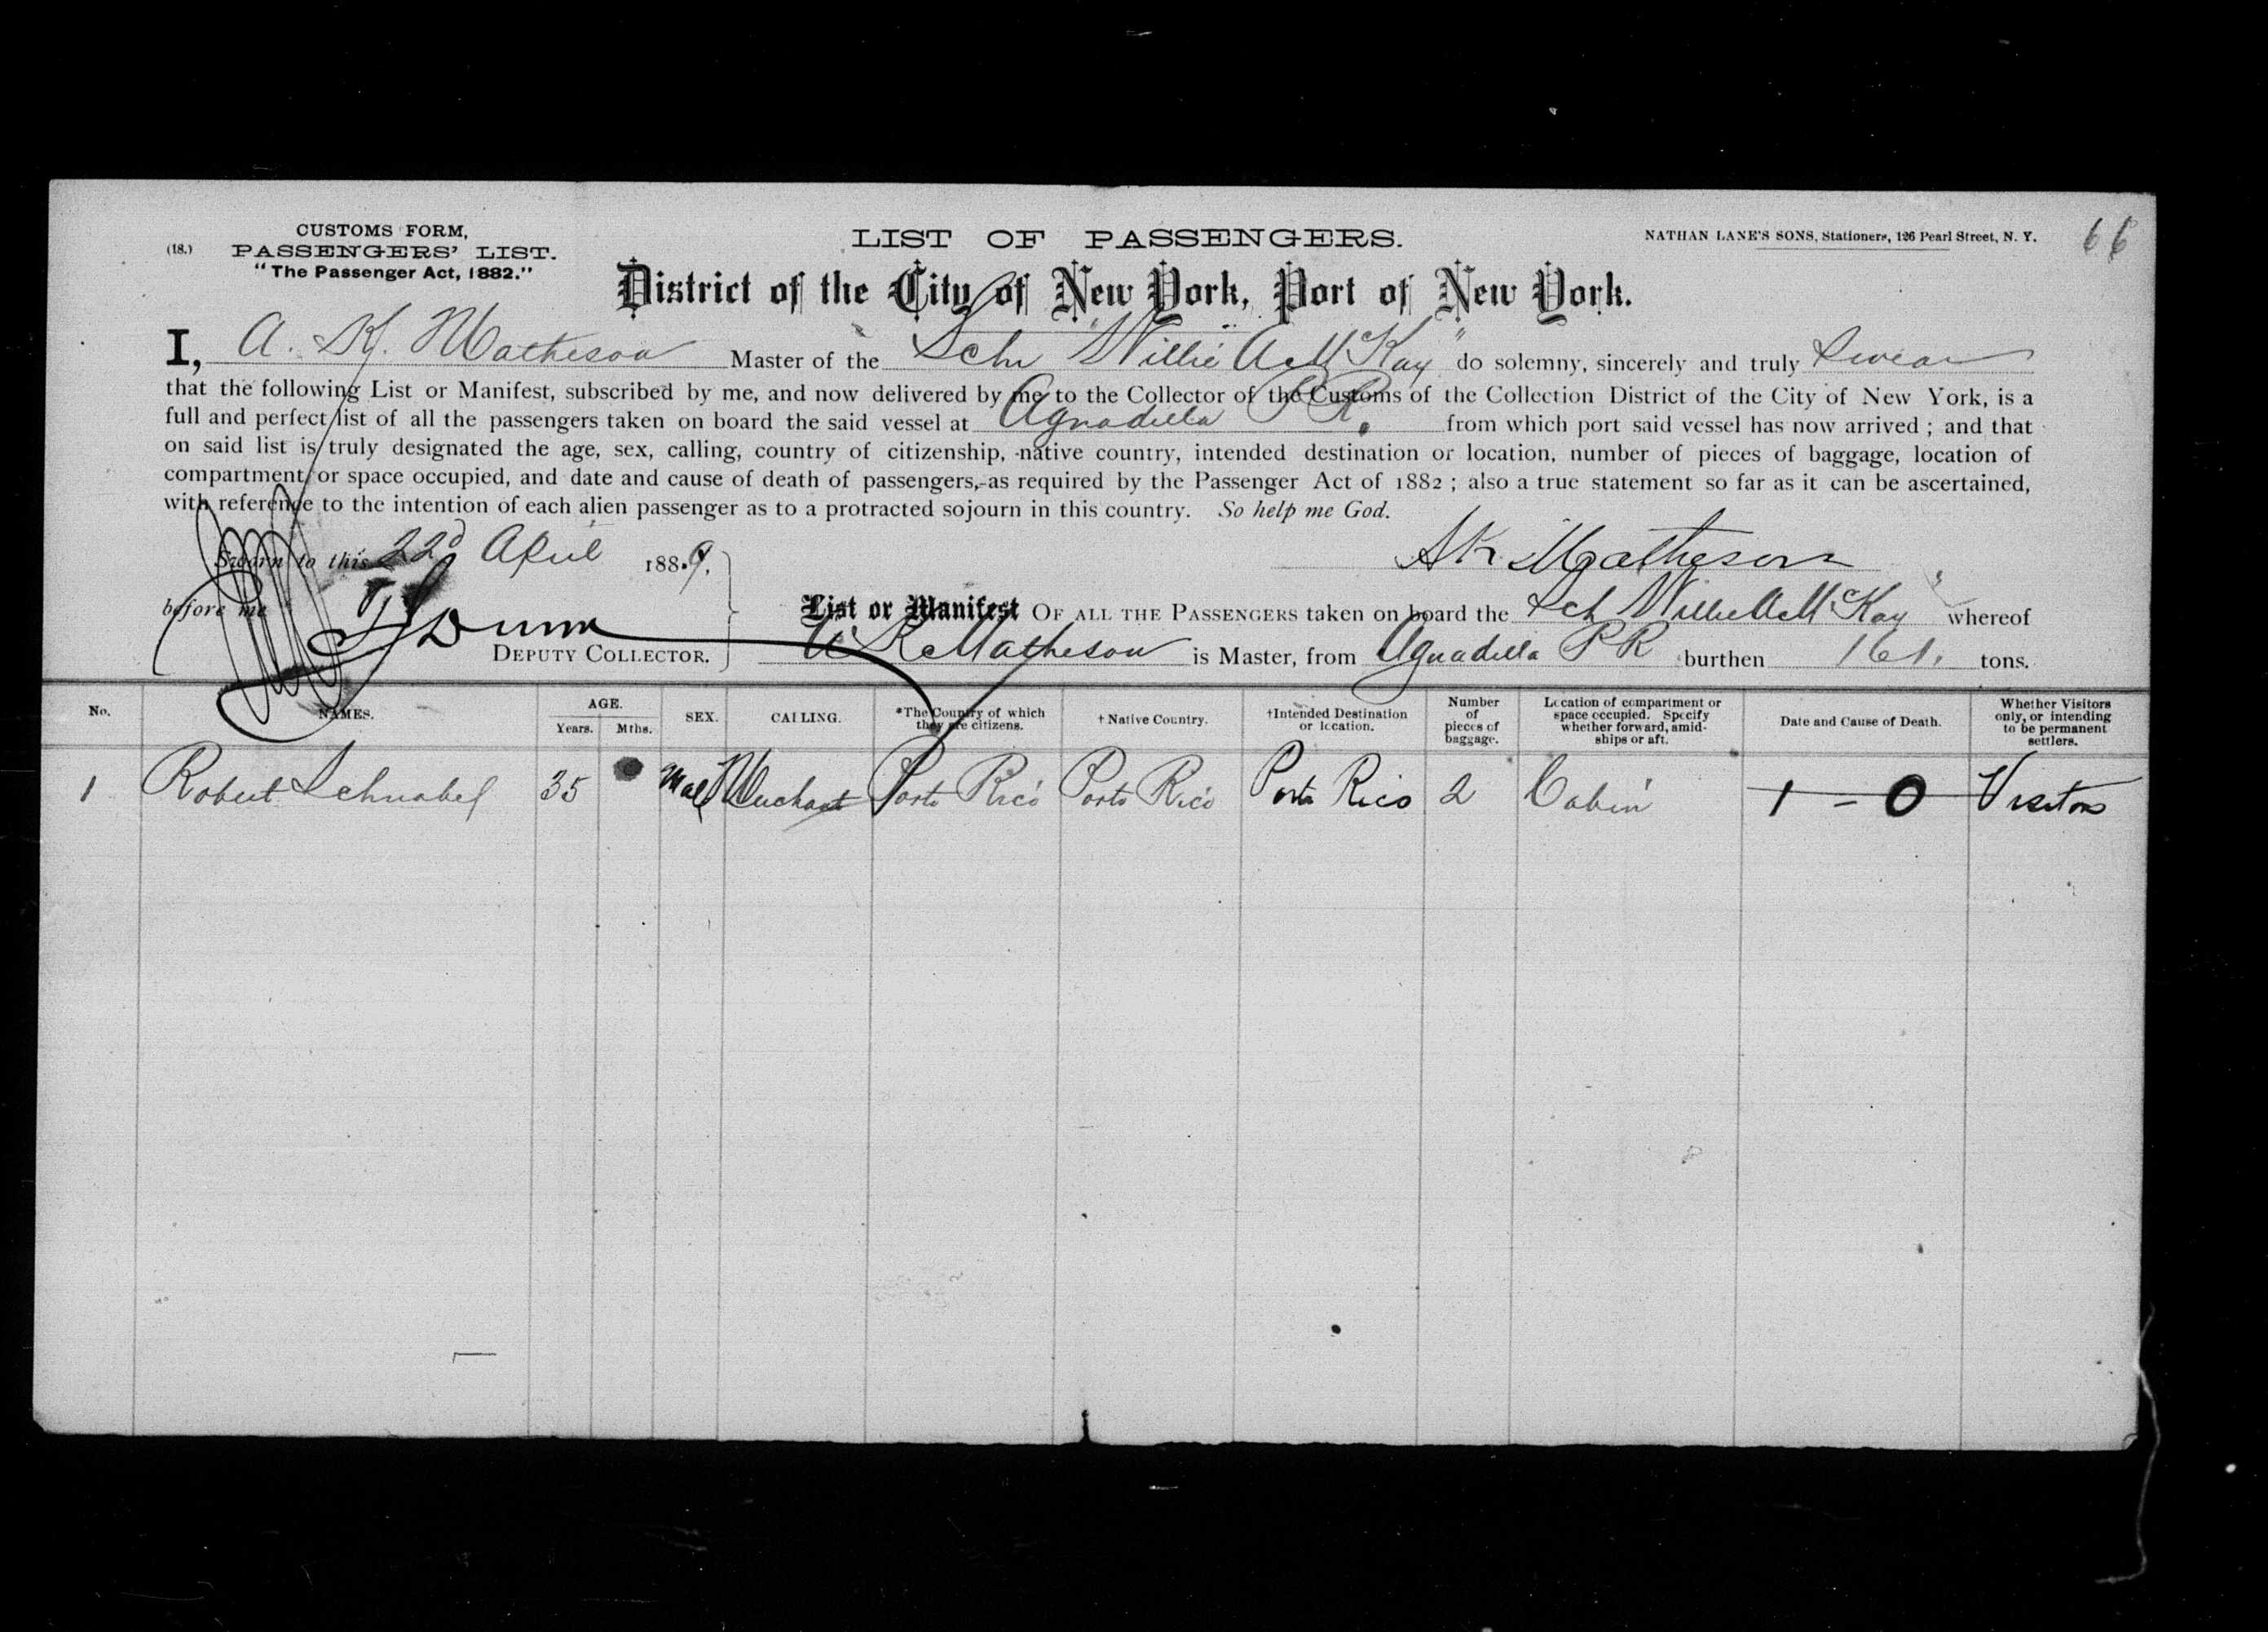 CUSTOMS FORM,
(18.) PASSENGERS' LIST.
"The Passenger Act, 1882."
LIST OF PASSENGERS.
NATHAN LANE'S SONS, Stationers, 126 Pearl Street, N. Y.
66
District of the City of New York, Port of New York.
I, A. K. Matheson Master of the Schr "Willie A McKay" do solemny, sincerely and truly Swear
that the following List or Manifest, subscribed by me, and now delivered by me to the Collector of the Customs of the Collection District of the City of New York, is a
full and perfect list of all the passengers taken on board the said vessel at Aguadilla P R. from which port said vessel has now arrived ; and that
on said list is truly designated the age, sex, calling, country of citizenship, native country, intended destination or location, number of pieces of baggage, location of
compartment or space occupied, and date and cause of death of passengers, as required by the Passenger Act of 1882 ; also a true statement so far as it can be ascertained,
with reference to the intention of each alien passenger as to a protracted sojourn in this country. So help me God.
Sworn to this 22d April 1889.
A K Matheson
before me
Dunn
DEPUTY COLLECTOR.
List or Manifest OF ALL THE PASSENGERS taken on board the Sch Willie A McKay" whereof
A K Matheson is Master, from Aguadilla P R burthen 161. tons.
No. NAMES. AGE. Years. Mths. SEX. CALLING. *The Country of which they are citizens. †Native Country. †Intended Destination or location. Number of pieces of baggage. Location of compartment or space occupied. Specify whether forward, amid-ships or aft. Date and Cause of Death. Whether Visitors only, or intending to be permanent settlers.
1 Robert Schnabel 35 Male Merchant Porto Rico Porto Rico Porto Rico 2 Cabin 1 - 0 Visitor